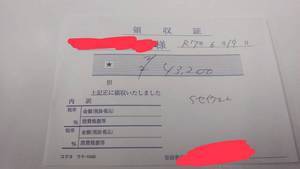 領収証
様 R7年6月19日
★ ¥43,200
但
上記正に領収いたしました
内訳
税率 金額(税抜・税込)
% 消費税額等
税率 金額(税抜・税込)
% 消費税額等
コクヨ